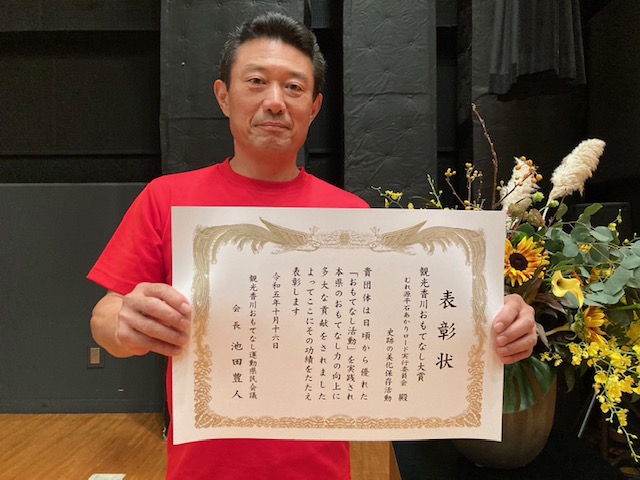 表彰状
観光香川おもてなし大賞
むれ源平石あかりロード実行委員会 殿
史跡の美化保存活動
貴団体は日頃から優れた
「おもてなし活動」を実践され
本県のおもてなし力の向上に
多大な貢献をされました
よってここにその功績をたたえ
表彰します
令和五年十月十六日
観光香川おもてなし運動県民会議
会長 池田豊人